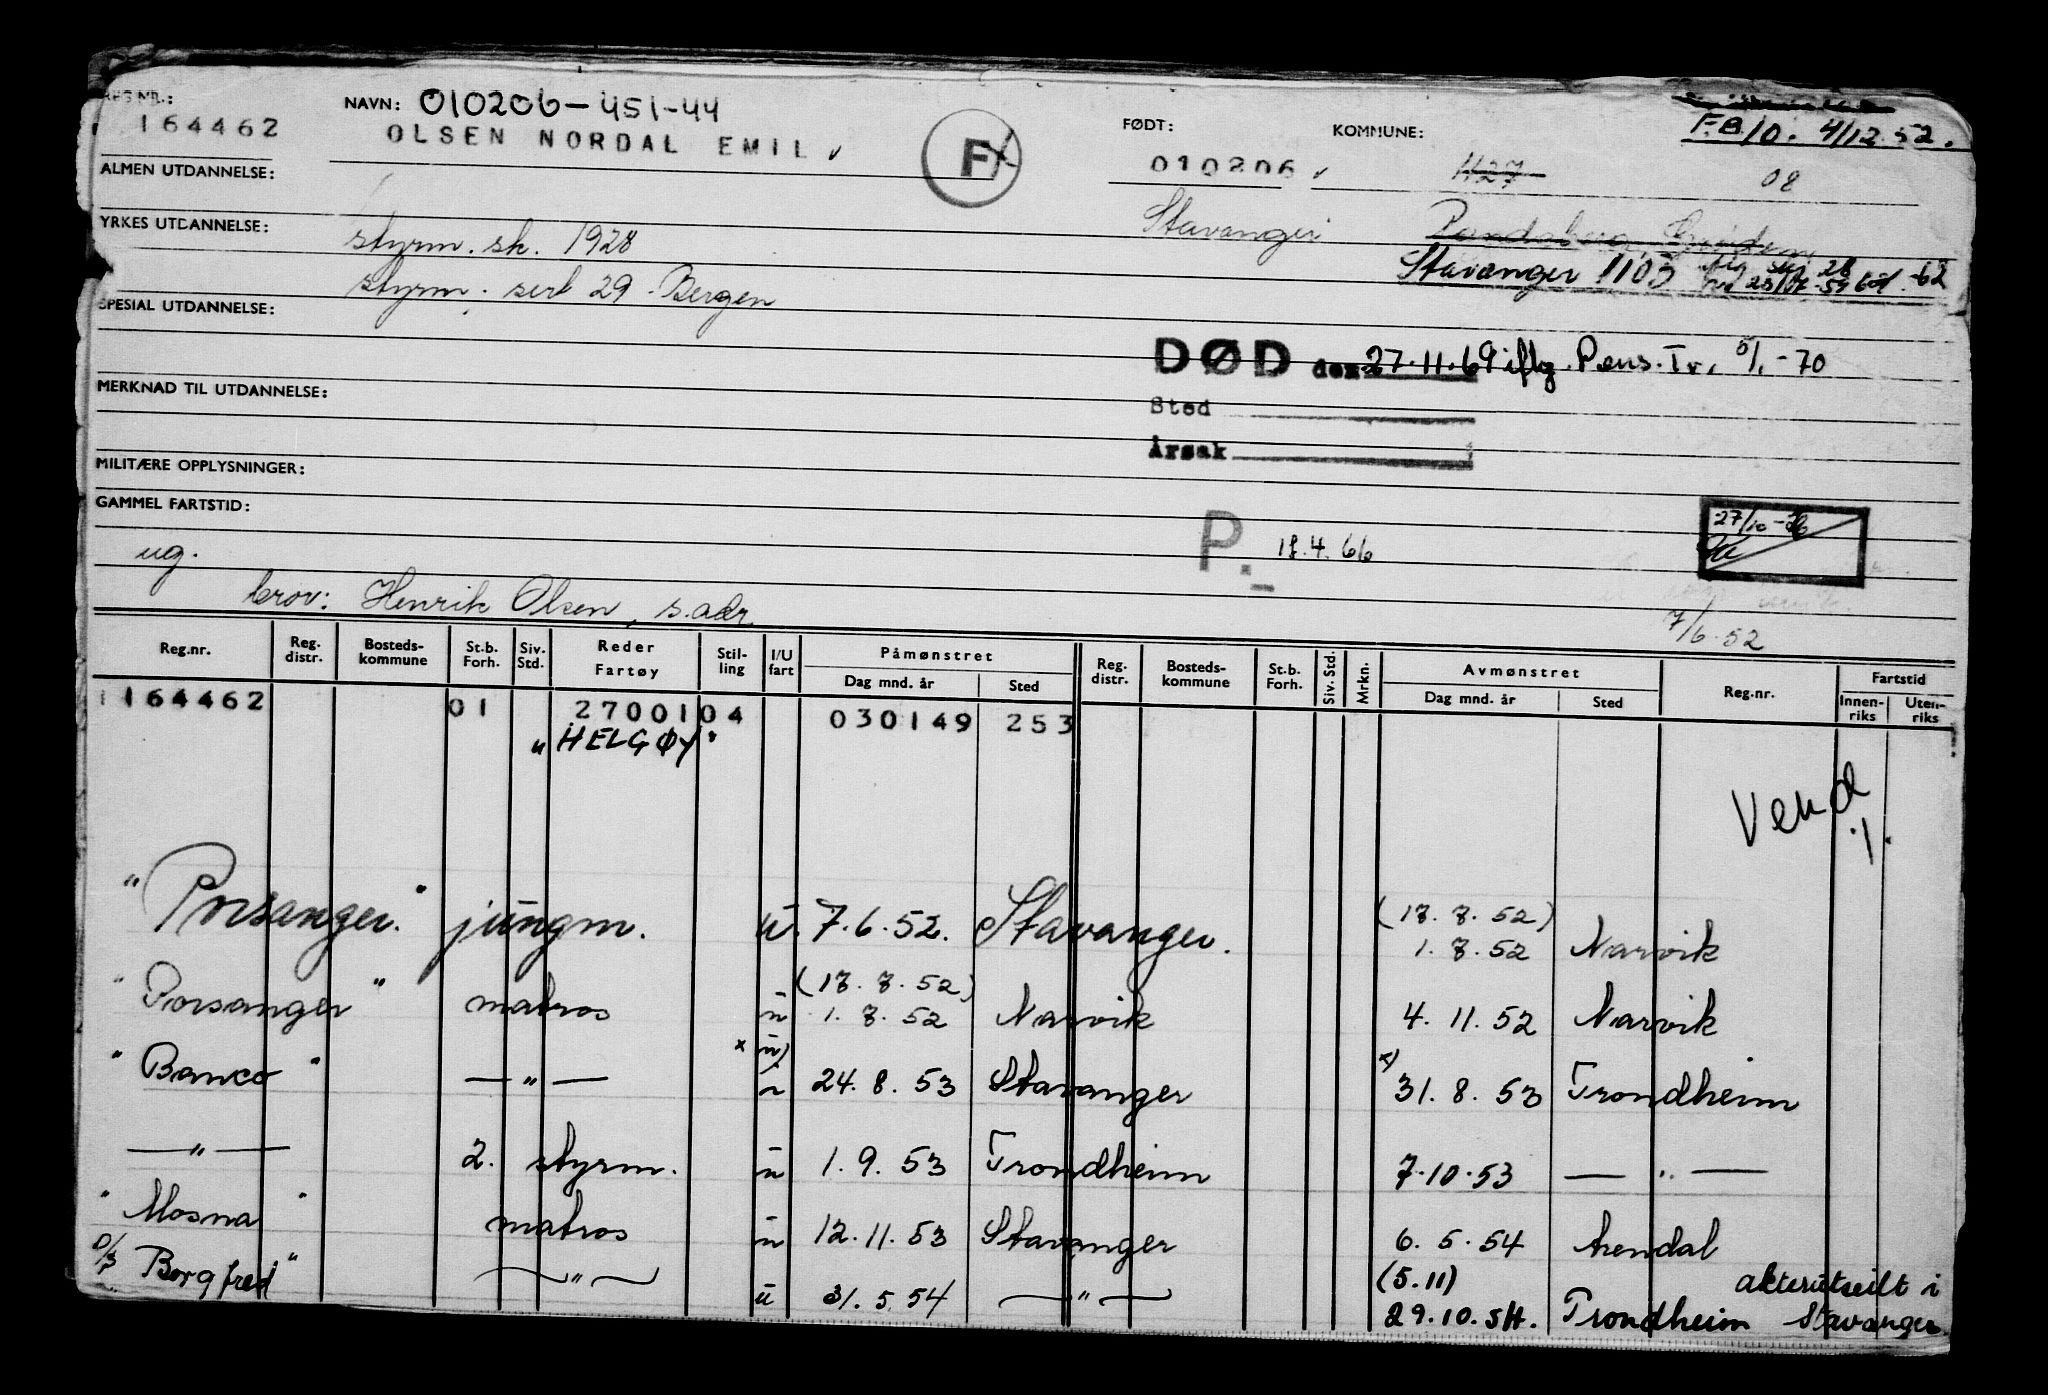 REG NR.: 164462
NAVN: 010206-451-44
OLSEN NORDAL EMIL ✓
F
FØDT: 010206 ✓
KOMMUNE: 1127
08
F.B/0. 4/12.52.
ALMEN UTDANNELSE:
YRKES UTDANNELSE: styrm. sk. 1928
styrm. sert 29. Bergen
Stavanger
Stavanger 1103
SPESIAL UTDANNELSE:
DØD den 27.11.69 iflg. Pens.Tr. 5/1-70
MERKNAD TIL UTDANNELSE:
Sted
Årsak
MILITÆRE OPPLYSNINGER:
GAMMEL FARTSTID:
27/10-
P. 18.4.66
ug.
bror: Henrik Olsen, s.adr.
7/6.52
Reg.nr. Reg. distr. Bosteds-kommune St.b. Forh. Siv. Std. Reder Fartøy Stil-ling I/U fart Påmønstret Dag mnd. år Sted Reg. distr. Bosteds-kommune St.b. Forh. Siv. Std. Mrkn. Avmønstret Dag mnd. år Sted Reg.nr. Fartstid Innen-riks Uten-riks
164462 01 2700104 030149 253
"HELGØY"
Vend
./.
"Porsanger" jungm. u. 7.6.52. Stavanger. (18.8.52) 1.8.52 Narvik
"Porsanger" matros u (18.8.52) 1.8.52 Narvik 4.11.52 Narvik
"Banco" — " — x u) u 24.8.53 Stavanger x) 31.8.53 Trondheim
— " — 2. styrm. u 1.9.53 Trondheim 7.10.53 — " —
"Mosna" matros u 12.11.53 Stavanger 6.5.54 Arendal
D/S Borgfred" — " — u 31.5.54 — " — (5.11) 29.10.54. Trondheim akterutseilt i Stavanger.